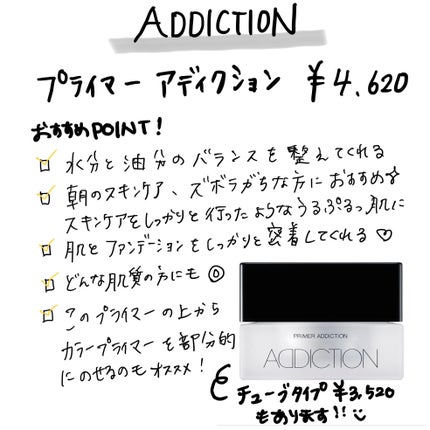 ADDICTION
プライマー アディクション ¥4,620
おすすめPOINT!
水分と油分のバランスを整えてくれる
朝のスキンケア、ズボラがちな方におすすめ☆
スキンケアをしっかりと行ったようなうるぷるっ肌に
肌とファンデーションをしっかりと密着してくれる♡
どんな肌質の方にも◎
このプライマーの上から
カラープライマーを部分的
にのせるのもオススメ!
PRIMER ADDICTION
ADDICTION
チューブタイプ ¥3,520
もあります!!